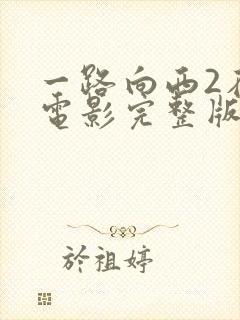 一路向西2
電影完整版
於祖婷